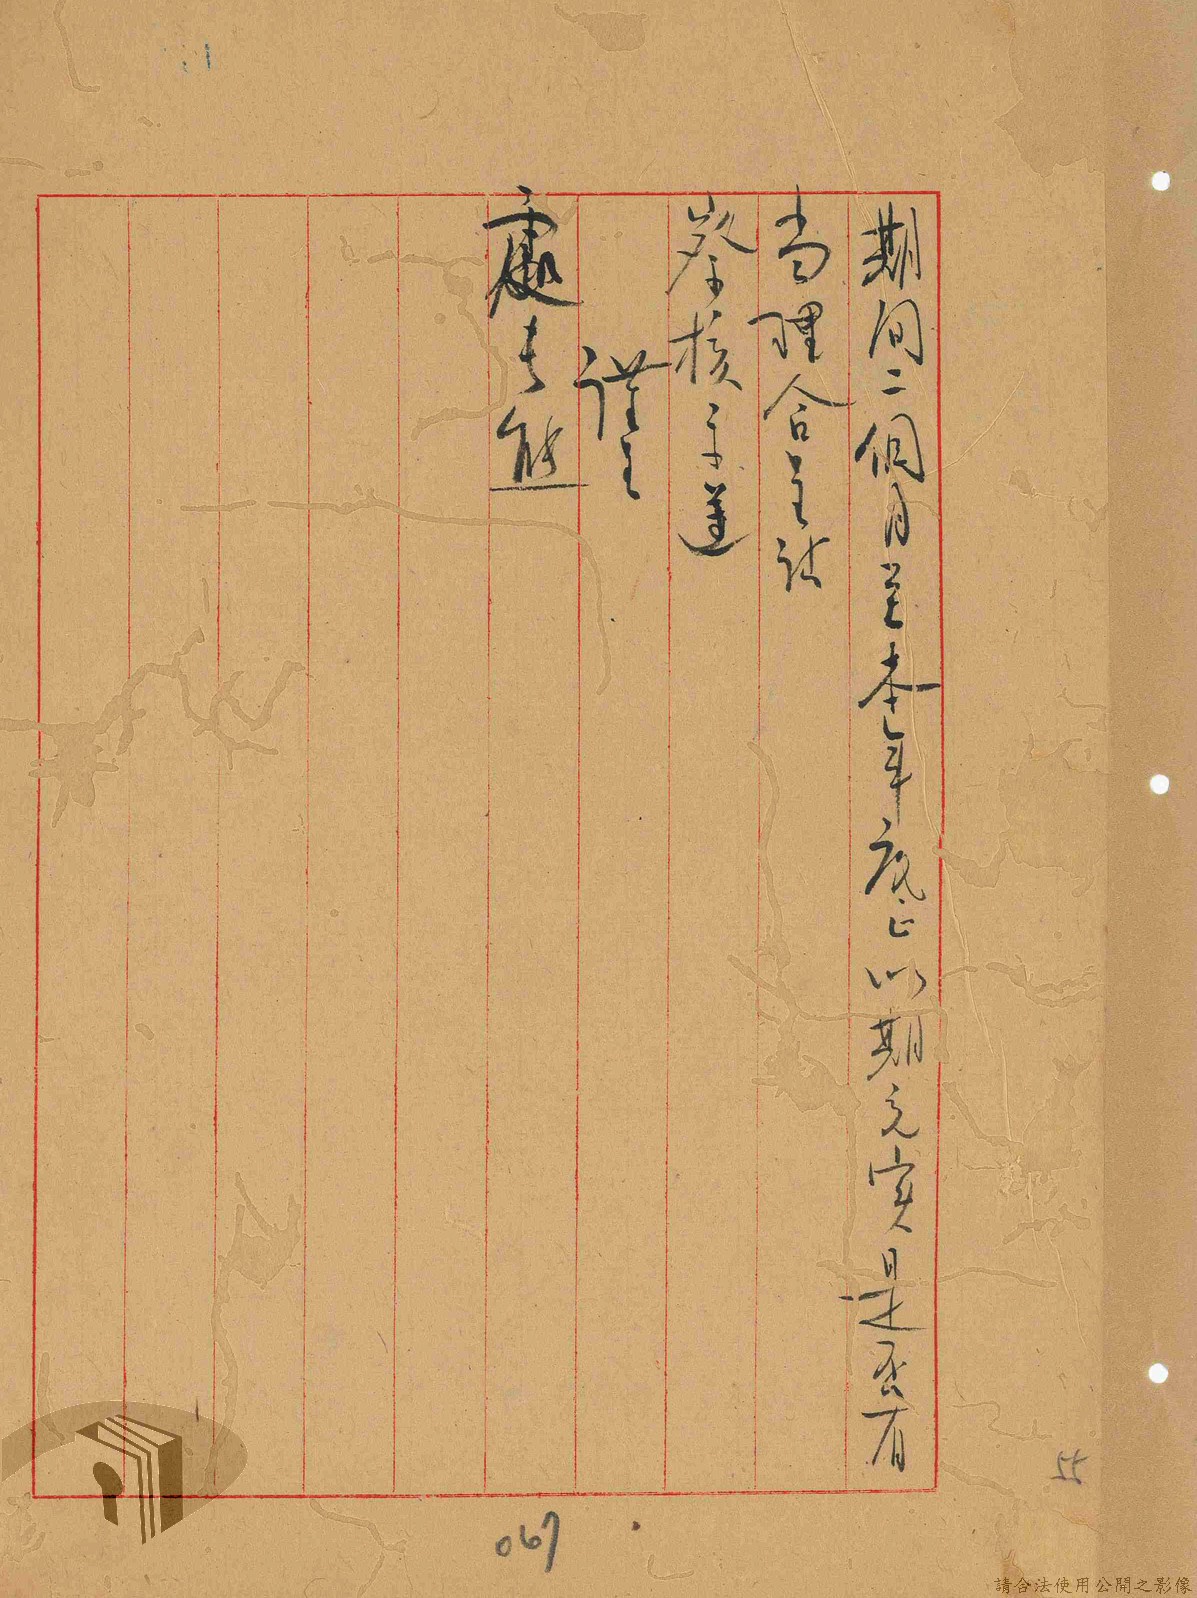 期間二個月至本年底止以期充實是否有
當理合呈請
察核示遵
謹呈
處長熊
067
55
請合法使用公開之影像